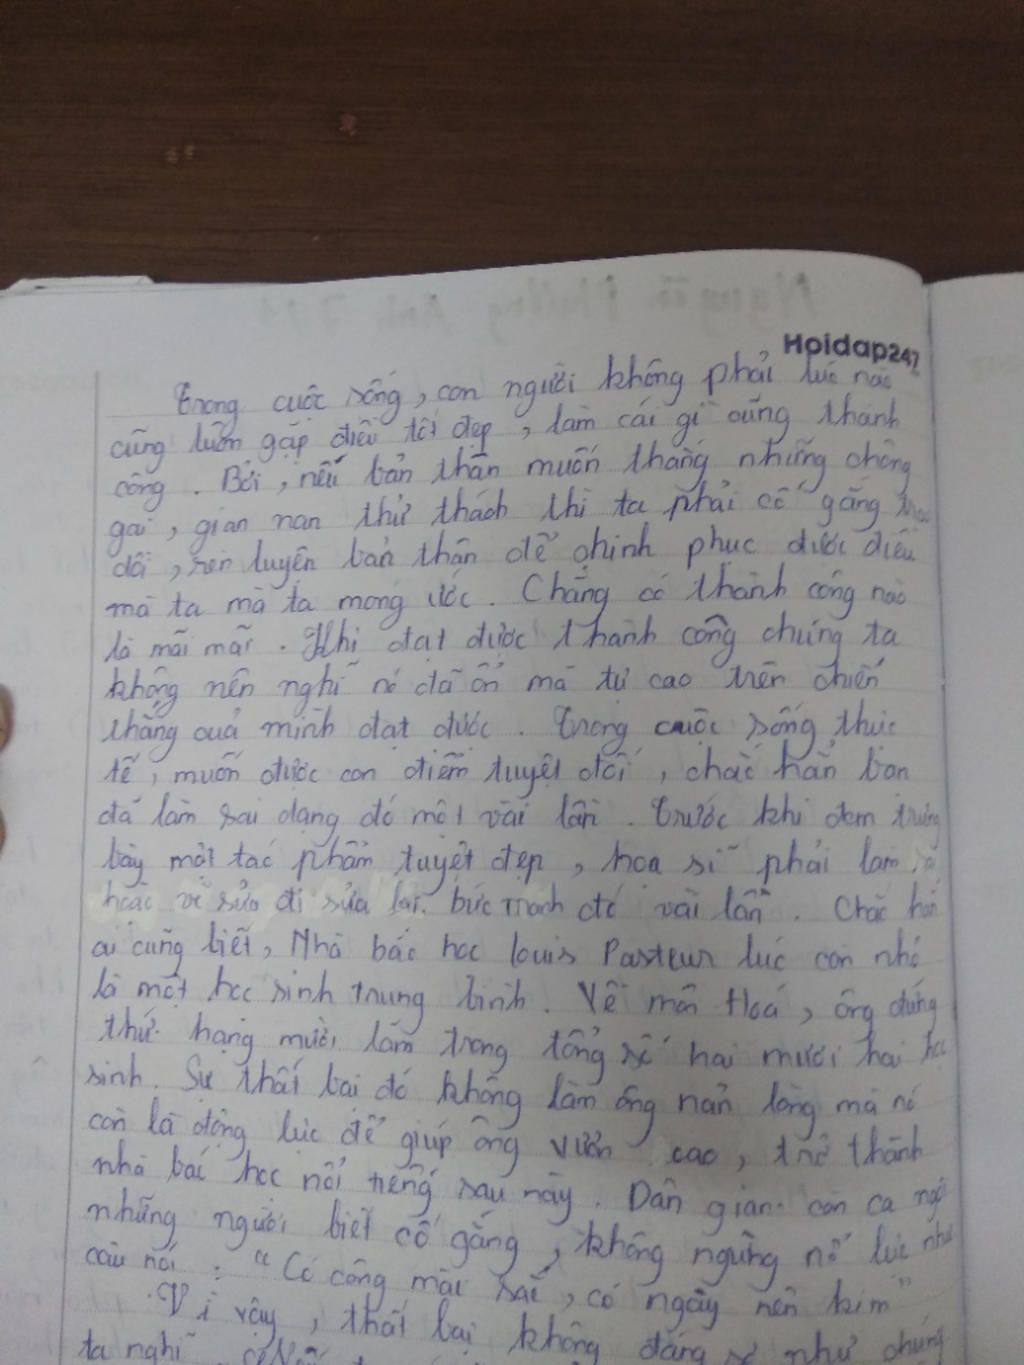 Hoidap247
Trong cuộc sống, con người không phải lúc nào
cũng luôn gặp điều tốt đẹp, làm cái gì cũng thành
công. Bởi, nếu bản thân muốn thắng những chông
gai, gian nan thử thách thì ta phải cố gắng trau
dồi, rèn luyện bản thân để chinh phục được điều
mà ta mà ta mong ước. Chẳng có thành công nào
là mãi mãi. Khi đạt được thành công chúng ta
không nên nghĩ nó đã ổn mà tự cao trên chiến
thắng quả mình đạt được. Trong cuộc sống thực
tế, muốn được con điểm tuyệt đối, chắc hẳn bạn
đã làm sai dạng đó một vài lần. Trước khi đem trưng
bày một tác phẩm tuyệt đẹp, họa sĩ phải làm
hoặc vẽ sửa đi sửa lại bức tranh đó vài lần. Chắc hẳn
ai cũng biết, Nhà bác học Louis Pasteur lúc còn nhỏ
là một học sinh trung bình. Về môn Hoá, ông đứng
thứ hạng mười lăm trong tổng số hai mươi hai học
sinh. Sự thất bại đó không làm ông nản lòng mà nó
còn là động lực để giúp ông vươn cao, trở thành
nhà bác học nổi tiếng sau này. Dân gian còn ca ngợi
những người biết cố gắng, không ngừng nỗ lực như
câu nói: "Có công mài sắt, có ngày nên kim"
Vì vậy, thất bại không đáng sợ như chúng
ta nghĩ